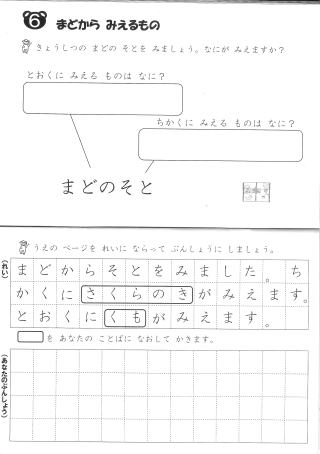 6 まどから みえるもの
きょうしつの まどの そとを みましょう。なにが みえますか？
とおくに みえる ものは なに？
ちかくに みえる ものは なに？
まどのそと
うえの ページを れいに ならって ぶんしょうに しましょう。
(れい)
まどからそとをみました。ち
かくにさくらのきがみえます。
とおくにくもがみえます。
を あなたの ことばに なおして かきます。
(あなたのぶんしょう)